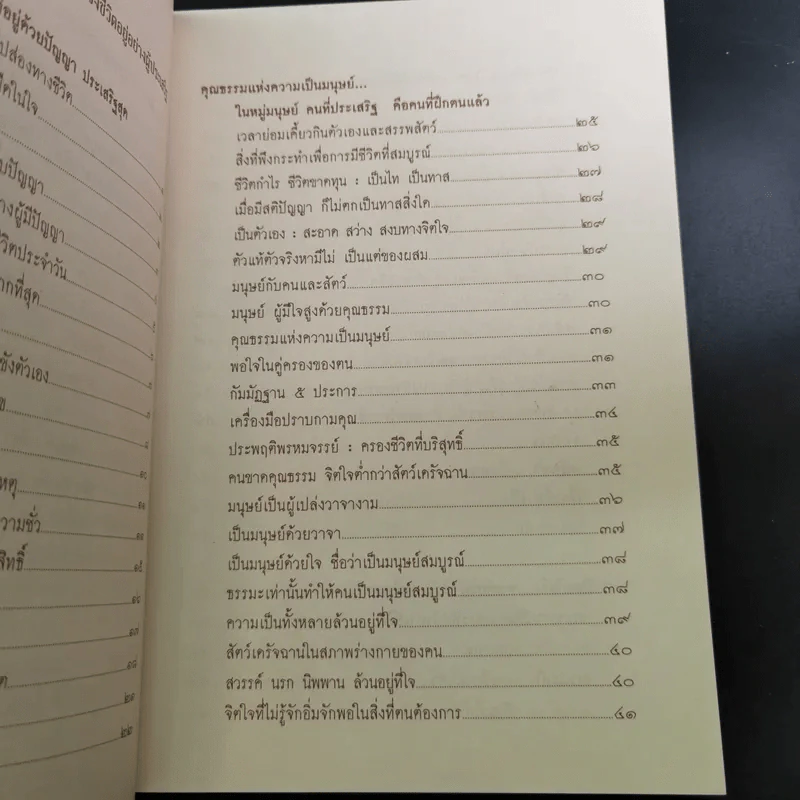 อยู่ด้วยปัญญา ประเสริฐสุด
ปส่องทางชีวิต
บปัญญา
างผู้มีปัญญา
ชีวิตประจำวัน
ากที่สุด
ชังตัวเอง
หตุ
วามชั่ว
สิทธิ์
คุณธรรมแห่งความเป็นมนุษย์...
ในหมู่มนุษย์ คนที่ประเสริฐ คือคนที่ฝึกตนแล้ว
เวลาย่อมเคี้ยวกินตัวเองและสรรพสัตว์ ๒๕
สิ่งที่พึงกระทำเพื่อการมีชีวิตที่สมบูรณ์ ๒๖
ชีวิตกำไร ชีวิตขาดทุน : เป็นไท เป็นทาส ๒๗
เมื่อมีสติปัญญา ก็ไม่ตกเป็นทาสสิ่งใด ๒๘
เป็นตัวเอง : สะอาด สว่าง สงบทางจิตใจ ๒๙
ตัวแท้ตัวจริงหามีไม่ เป็นแต่ของผสม ๒๙
มนุษย์กับคนและสัตว์ ๓๐
มนุษย์ ผู้มีใจสูงด้วยคุณธรรม ๓๐
คุณธรรมแห่งความเป็นมนุษย์ ๓๑
พอใจในคู่ครองของตน ๓๑
กัมมัฏฐาน ๕ ประการ ๓๓
เครื่องมือปราบกามคุณ ๓๔
ประพฤติพรหมจรรย์ : ครองชีวิตที่บริสุทธิ์ ๓๕
คนขาดคุณธรรม จิตใจต่ำกว่าสัตว์เดรัจฉาน ๓๕
มนุษย์เป็นผู้เปล่งวาจางาม ๓๖
เป็นมนุษย์ด้วยวาจา ๓๗
เป็นมนุษย์ด้วยใจ ชื่อว่าเป็นมนุษย์สมบูรณ์ ๓๘
ธรรมะเท่านั้นทำให้คนเป็นมนุษย์สมบูรณ์ ๓๘
ความเป็นทั้งหลายล้วนอยู่ที่ใจ ๓๙
สัตว์เดรัจฉานในสภาพร่างกายของคน ๔๐
สวรรค์ นรก นิพพาน ล้วนอยู่ที่ใจ ๔๐
จิตใจที่ไม่รู้จักอิ่มจักพอในสิ่งที่ตนต้องการ ๔๑